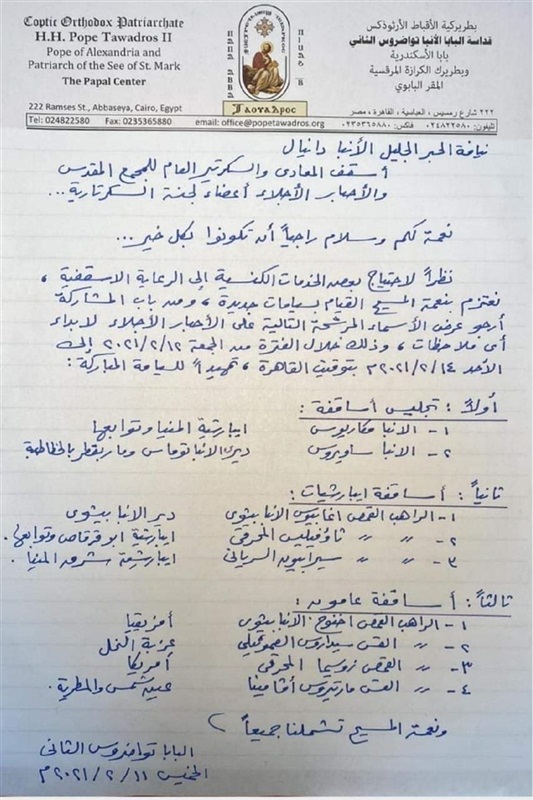 Coptic Orthodox Patriarchate
H.H. Pope Tawadros II
Pope of Alexandria and
Patriarch of the See of St. Mark
The Papal Center
222 Ramses St., Abbaseya, Cairo, Egypt
بطريركية الأقباط الأرثوذكس
قداسة البابا الأنبا تواضروس الثاني
بابا الأسكندرية
وبطريرك الكرازة المرقسية
المقر البابوي
٢٢٢ شارع رمسيس، العباسية، القاهرة، مصر
Tel: 024822580 Fax: 0235365880 email: office@popetawadros.org تليفون: ٠٢٤٨٢٢٥٨٠ فاكس: ٠٢٣٥٣٦٥٨٨٠
نيافة الحبر الجليل الأنبا دانيال
أسقف المعادى والسكرتير العام للمجمع المقدس
والأحبار الأجلاء أعضاء لجنة السكرتارية...
نعمة لكم وسلام راجياً أن تكونوا بكل خير...
نظراً لاحتياج بعض الخدمات الكنسية إلى الرعاية الأسقفية،
نعتزم بنعمة المسيح القيام بسيامات جديدة، ومن باب المشاركة
أرجو عرض الأسماء المرشحة التالية على الأحبار الأجلاء لابداء
أى ملاحظات، وذلك خلال الفترة من الجمعة ٢٠٢١/٢/١٢ إلى
الأحد ٢٠٢١/٢/١٤م بتوقيت القاهرة، تمهيداً للسيامة المباركة:
أولاً: تجليس أساقفة:
١- الانبا مكاريوس ايبارشية المنيا وتوابعها
٢- الانبا ساويروس ديرى الانبا توماس ومار بقطر بالخطاطبة
ثانياً: أساقفة ايبارشيات:
١- الراهب القمص اغابيوس الأنبا بيشوى دير الانبا بيشوى
٢- 〃 〃 ثاؤفيلس المحرقى ايبارشية ابوقرقاص وتوابعها.
٣- 〃 〃 سيرابيون السريانى ايبارشية شرق المنيا.
ثالثاً: أساقفة عامون:
١- الراهب القمص اخنوخ الانبا بيشوى أفريقيا
٢- 〃 القس سيداروس الصموئيلى عزبة النخل
٣- 〃 القمص زوسيما المحرقى أمريكا
٤- 〃 القس مارتيروس أڤامينا عين شمس والمطرية.
ونعمة المسيح تشملنا جميعاً
البابا تواضروس الثانى
الخميس ٢٠٢١/٢/١١م